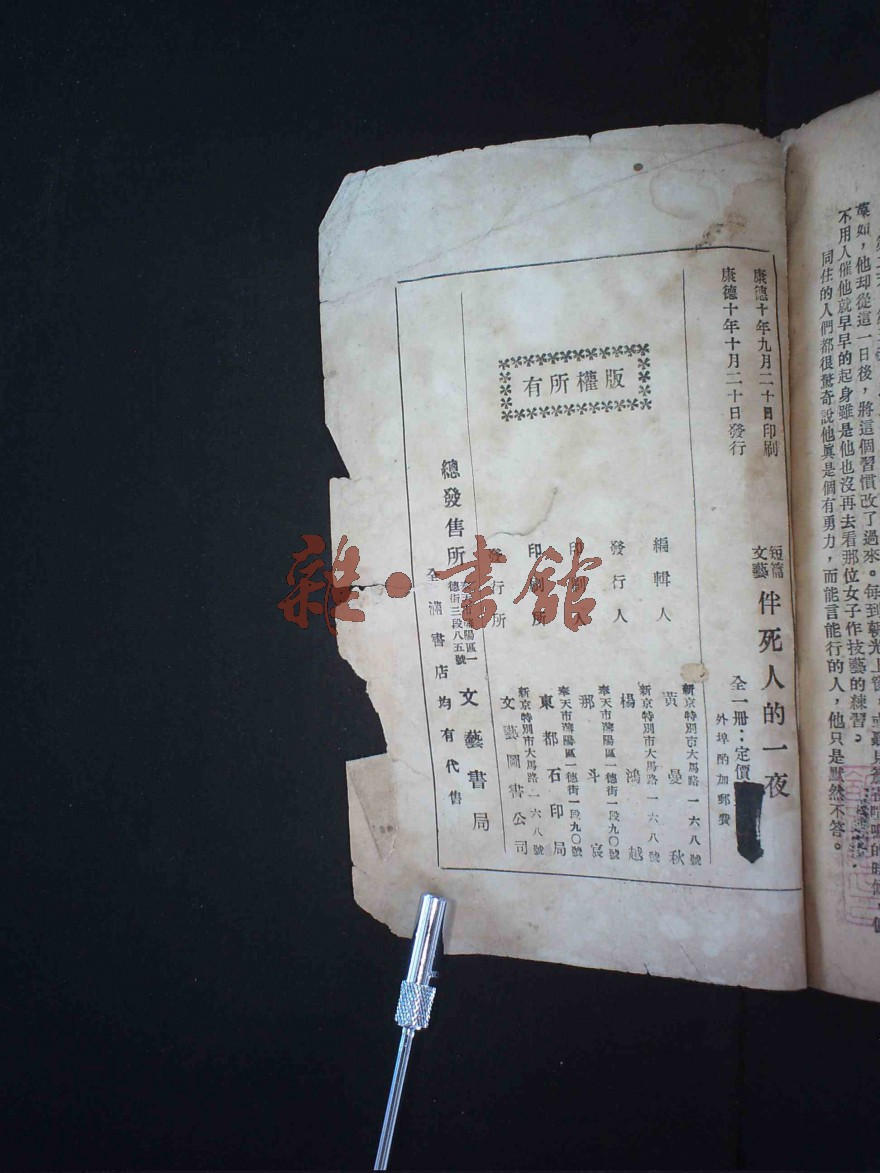 第二天，第三
草如，他却從這一日後，將這個習慣改了過來。每到朝光上窗，或聽見
不用人催他就早早的起身雖是他也沒再去看那位女子作技藝的練習。
同住的人們都很驚奇說他眞是個有勇力，而能言能行的人，他只是默然不答。
康德十年九月二十日印刷
康德十年十月二十日發行
短篇文藝 伴死人的一夜
全一冊：定價
外埠酌加郵費
版權所有
新京特別市大馬路一六八號
編輯人 黃曼秋
新京特別市大馬路一六八號
發行人 楊鴻越
奉天市瀋陽區一德街一段九〇號
印刷人 那斗宸
奉天市瀋陽區一德街一段九〇號
印刷所 東都石印局
新京特別市大馬路一六八號
發行所 文藝圖書公司
總發售所 奉天市瀋陽區一德街三段八五號 文藝書局
全滿書店均有代售
雜·書館